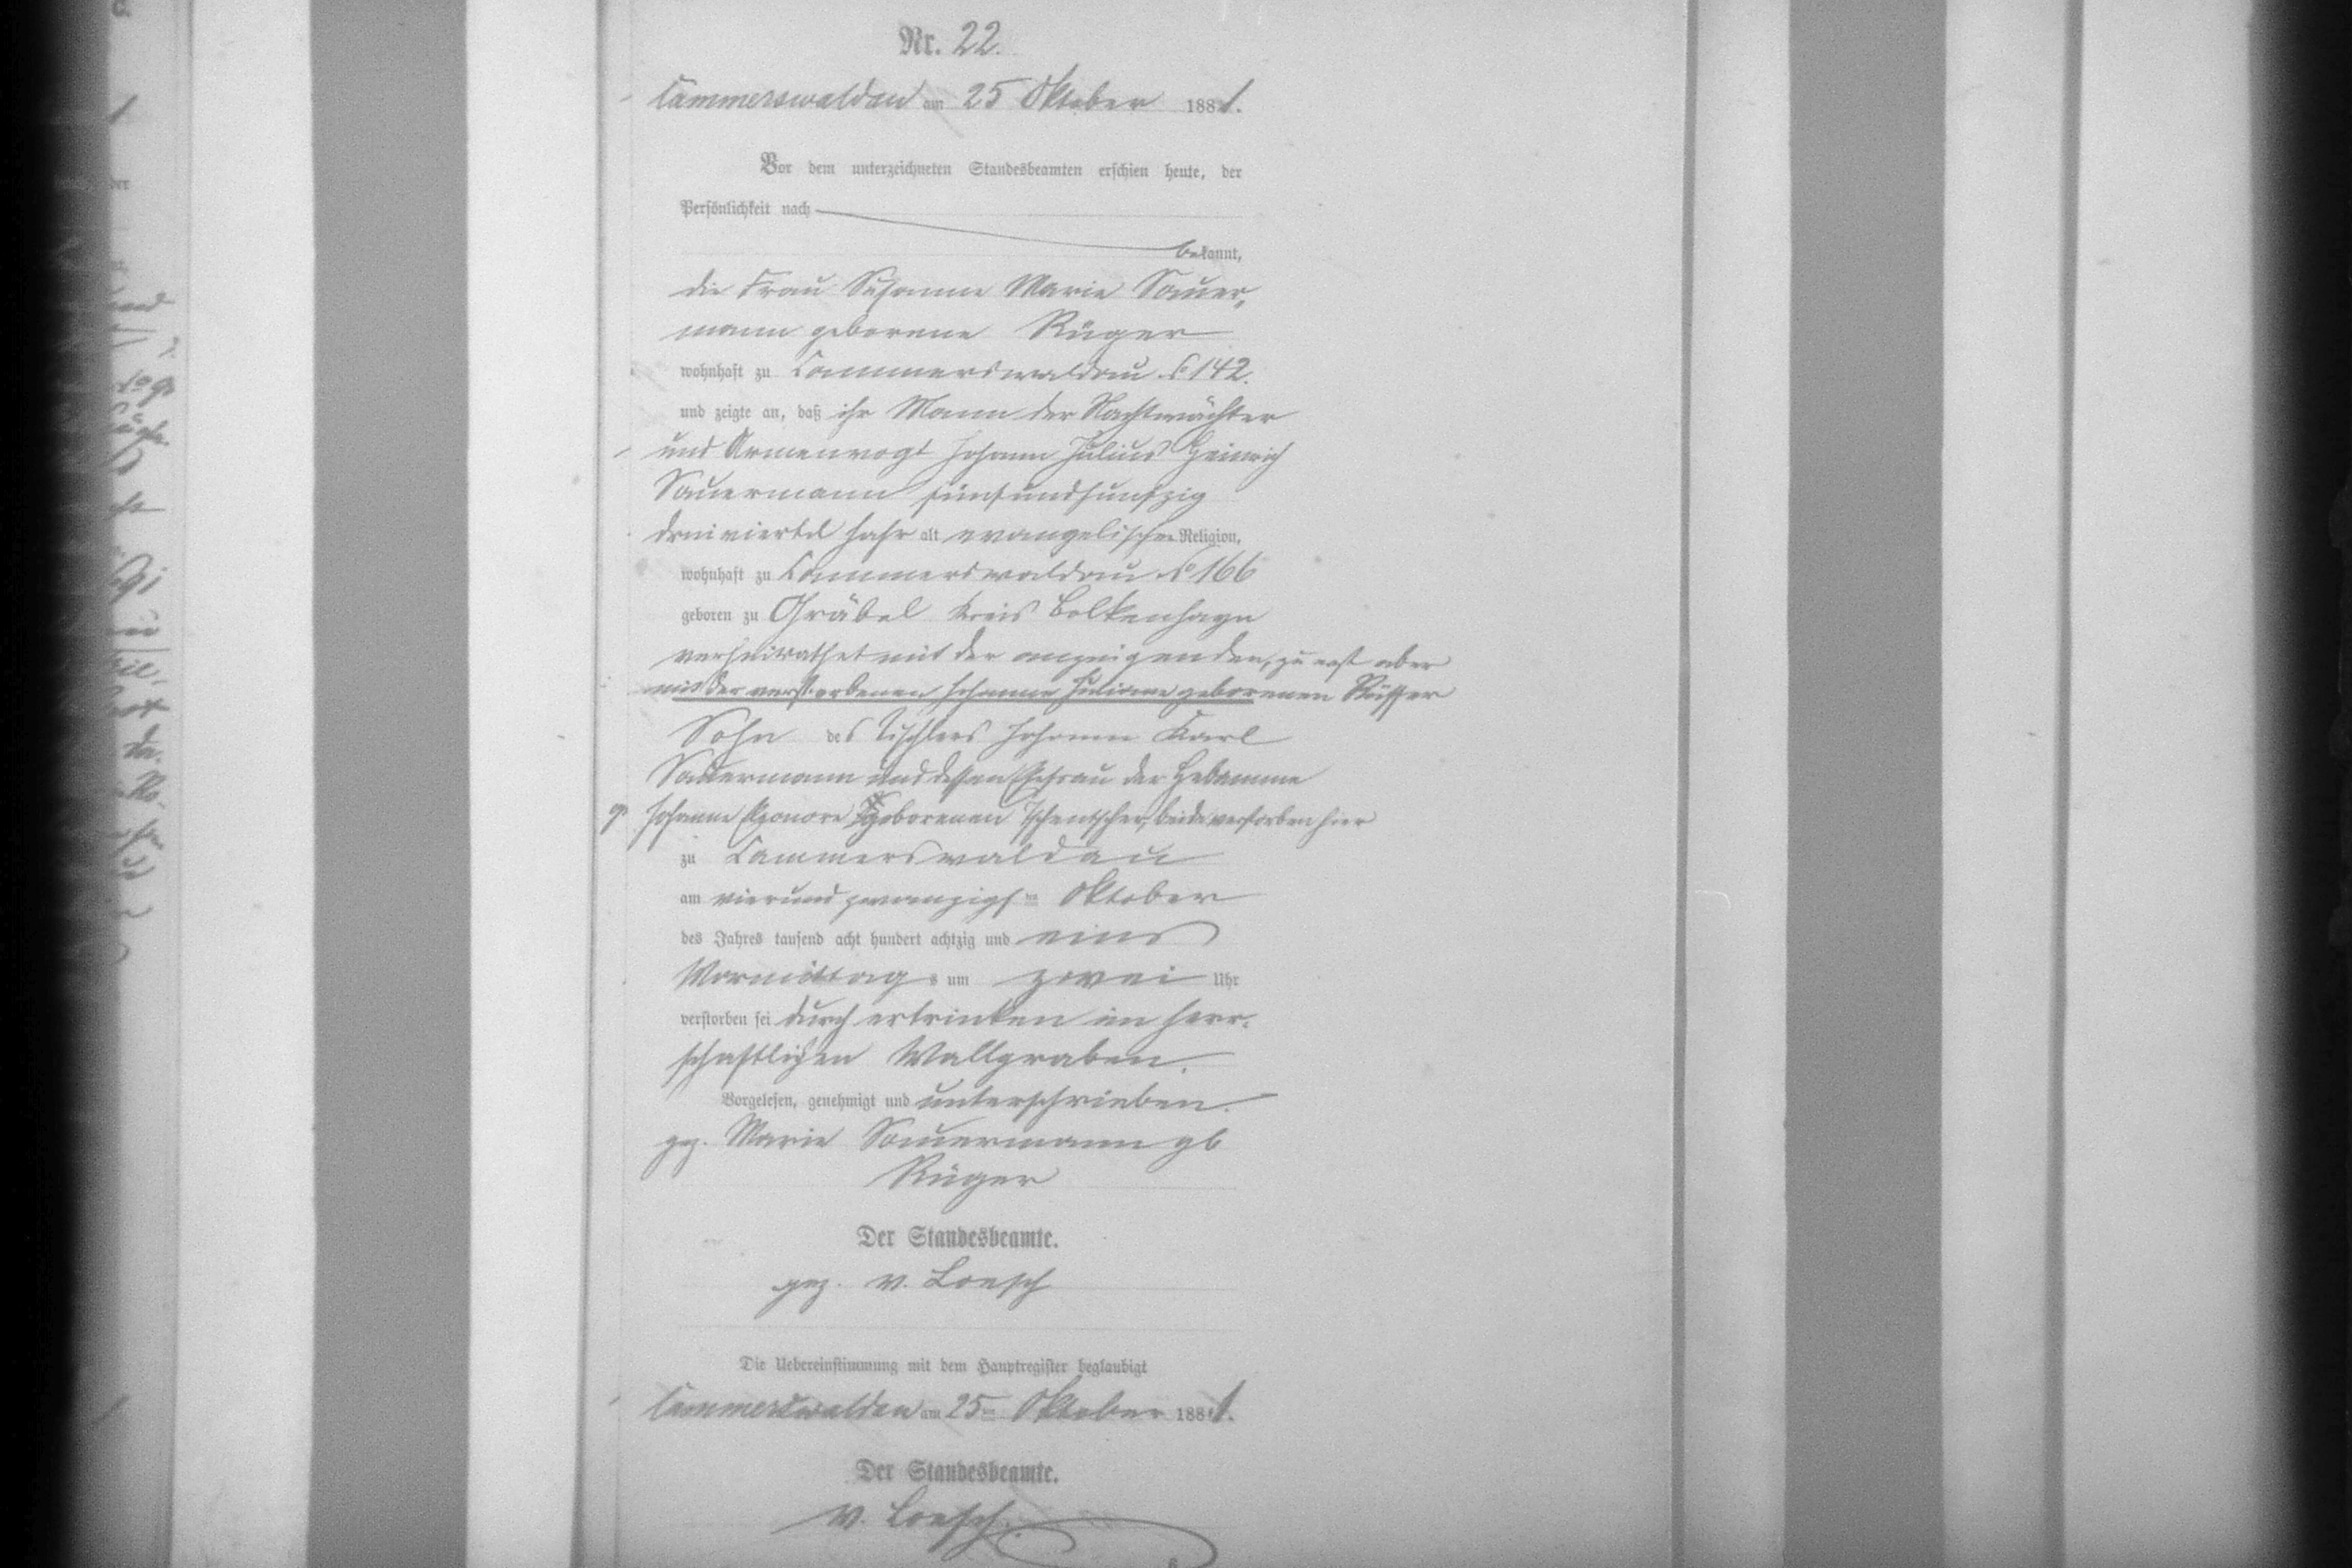 Nr. 22.
Cammerswaldau am 25 Oktober 1881.
Vor dem unterzeichneten Standesbeamten erschien heute, der
Persönlichkeit nach
bekannt,
die Frau Susanne Marie Sauer,
mann geborene Rüger
wohnhaft zu Cammerswaldau No 142.
und zeigte an, daß ihr Mann der Nachtwächter
und Armenvogt Johann Julius Heinrich
Sauermann fünfundfunfzig
dreiviertel Jahr alt evangelischer Religion,
wohnhaft zu Cammerswaldau No 166
geboren zu Gräbel Kreis Bolkenhayn
verheirathet mit der anzeigenden, zu erst aber
mit der verstorbenen Johanne Juliane geborenen
Sohn des Tischlers Johann Karl
Sauermann und dessen Ehefrau der Hebamme
Johanne Eleonore geborenen Tschentscher, beide verstorben hier
zu Cammerswaldau
am vierundzwanzigsten Oktober
des Jahres tausend acht hundert achtzig und eins
Vormittags um zwei Uhr
verstorben sei durch ertrinken im herr-
schaftlichen Wallgraben.
Vorgelesen, genehmigt und unterschrieben.
gez. Marie Sauermann gb
Rüger
Der Standesbeamte.
gez. v. Loesch
Die Uebereinstimmung mit dem Hauptregister beglaubigt
Cammerswaldau am 25ten Oktober 1881.
Der Standesbeamte.
v. Loesch.